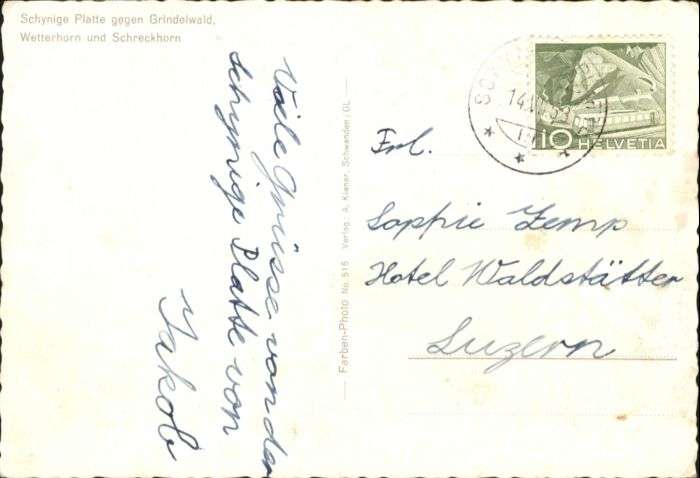 Schynige Platte gegen Grindelwald,
Wetterhorn und Schreckhorn
Viele Grüsse von der
schynige Platte von
Jakob
Farben-Photo No. 515 Verlag: A. Kiener, Schwanden/GL
10 HELVETIA
Frl.
Sophie Zemp
Hotel Waldstätter
Luzern